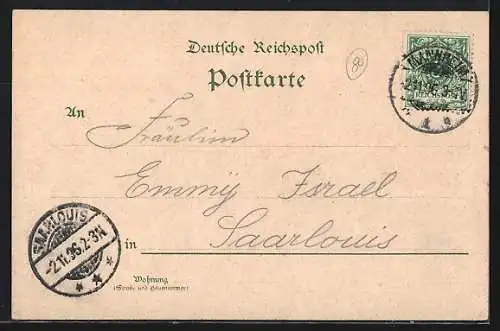 Deutsche Reichspost
Postkarte
8
MANNHEIM
An
Fräulein
Emmÿ Israel
SAARLOUIS
-2.11.96.2-3N
in Saarlouis
Wohnung
(Straße und Hausnummer)